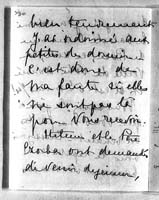 bien tendrement
J'ai ordonné aux
petites de dormir
C'est donc de
ma faute si elles
ne sont pas là
pour vous recevoir.
et le Père
ont demandé
de venir déjeuner,